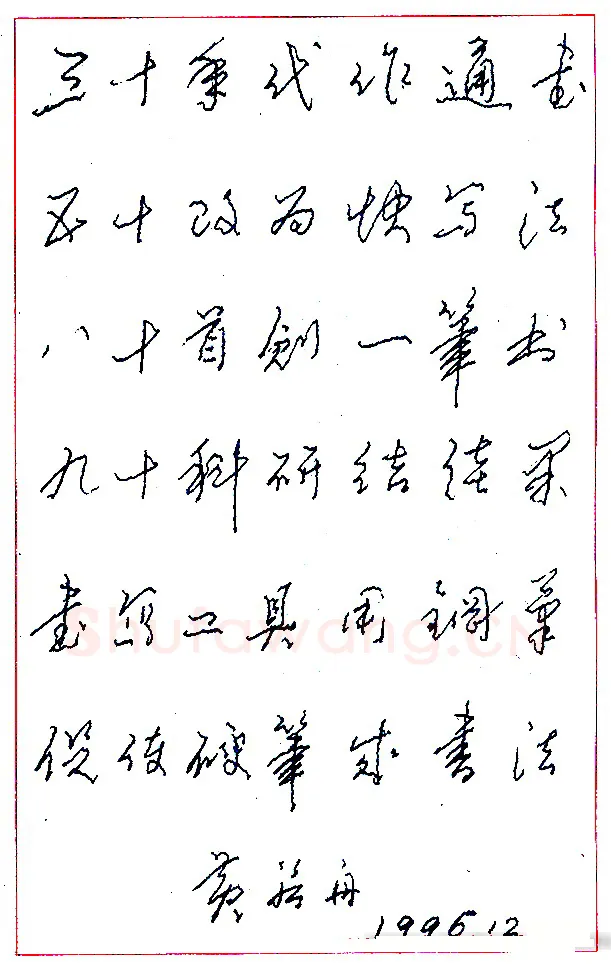 三十年代作通书
五十改为快写法
八十首创一笔书
九十科研结硕果
书写工具用钢笔
促使硬笔成书法
黄若舟
1996.12
ShufaWang.CN